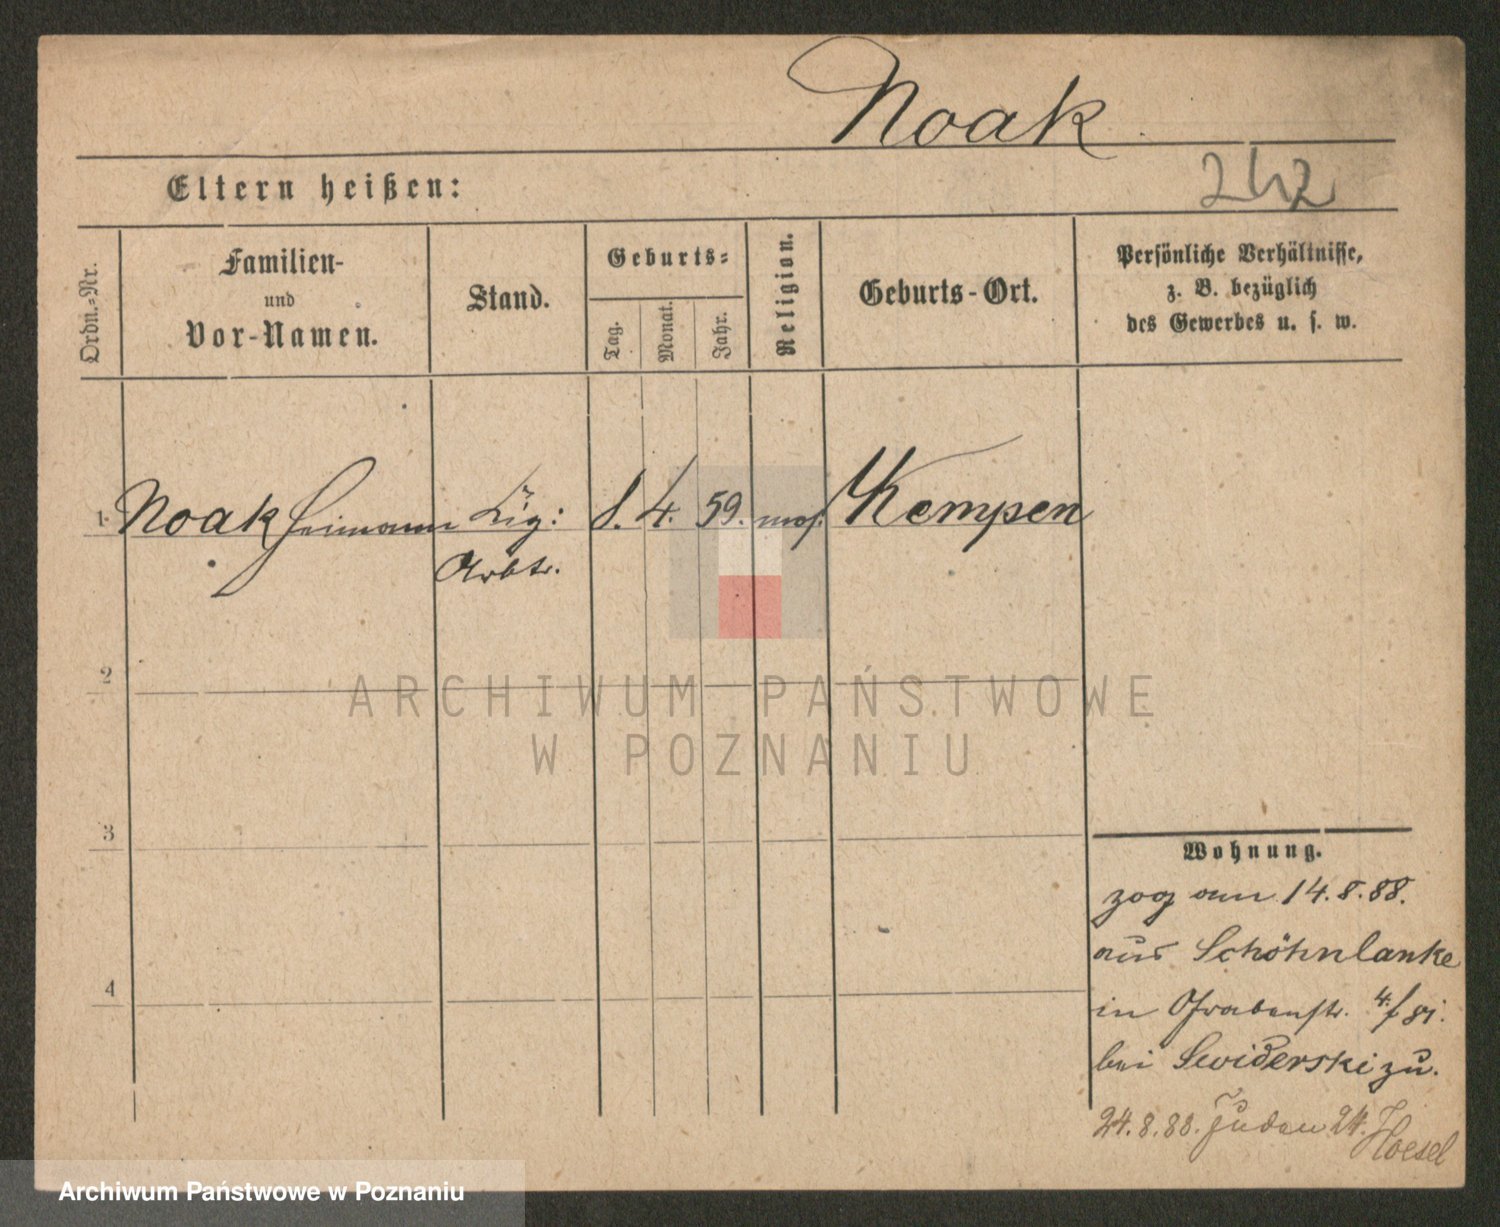 Noak
242
Eltern heißen:
Ordn.=Nr.
Familien-
und
Vor-Namen.
Stand.
Geburts=
Tag.
Monat.
Jahr.
Religion.
Geburts-Ort.
Persönliche Verhältnisse,
z. B. bezüglich
des Gewerbes u. s. w.
1. Noak Heimann Zig: 8. 4. 59. mos. Kempen
Arbtr.
2
3
4
Wohnung.
zog am 14.8.88.
aus Schöhnlanke
in Grabenstr.
bei Swiderski zu.
24.8.88. Juden 24.
Hoesel
ARCHIWUM PAŃSTWOWE
W POZNANIU
Archiwum Państwowe w Poznaniu